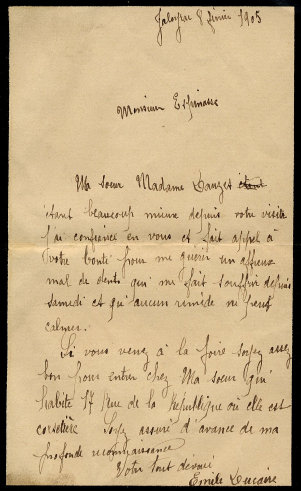 8 février 1905
Monsieur Espinasse
Ma soeur Madame Dauzet
étant beaucoup mieux depuis votre visite
j'ai confience en vous et fait appel à
votre bonté pour me guérir un affreux
mal de dents qui me fait souffrir depuis
samedi et qu'aucun remède ne peut
calmer.
Si vous venez à la foire soyez assez
bon pour entrer chez Ma soeur qui
habite 17 Rue de la République où elle est
corsetière Soyez assuré d'avance de ma
profonde reconnaissance
Votre tout dévoué
Emile Ducaire